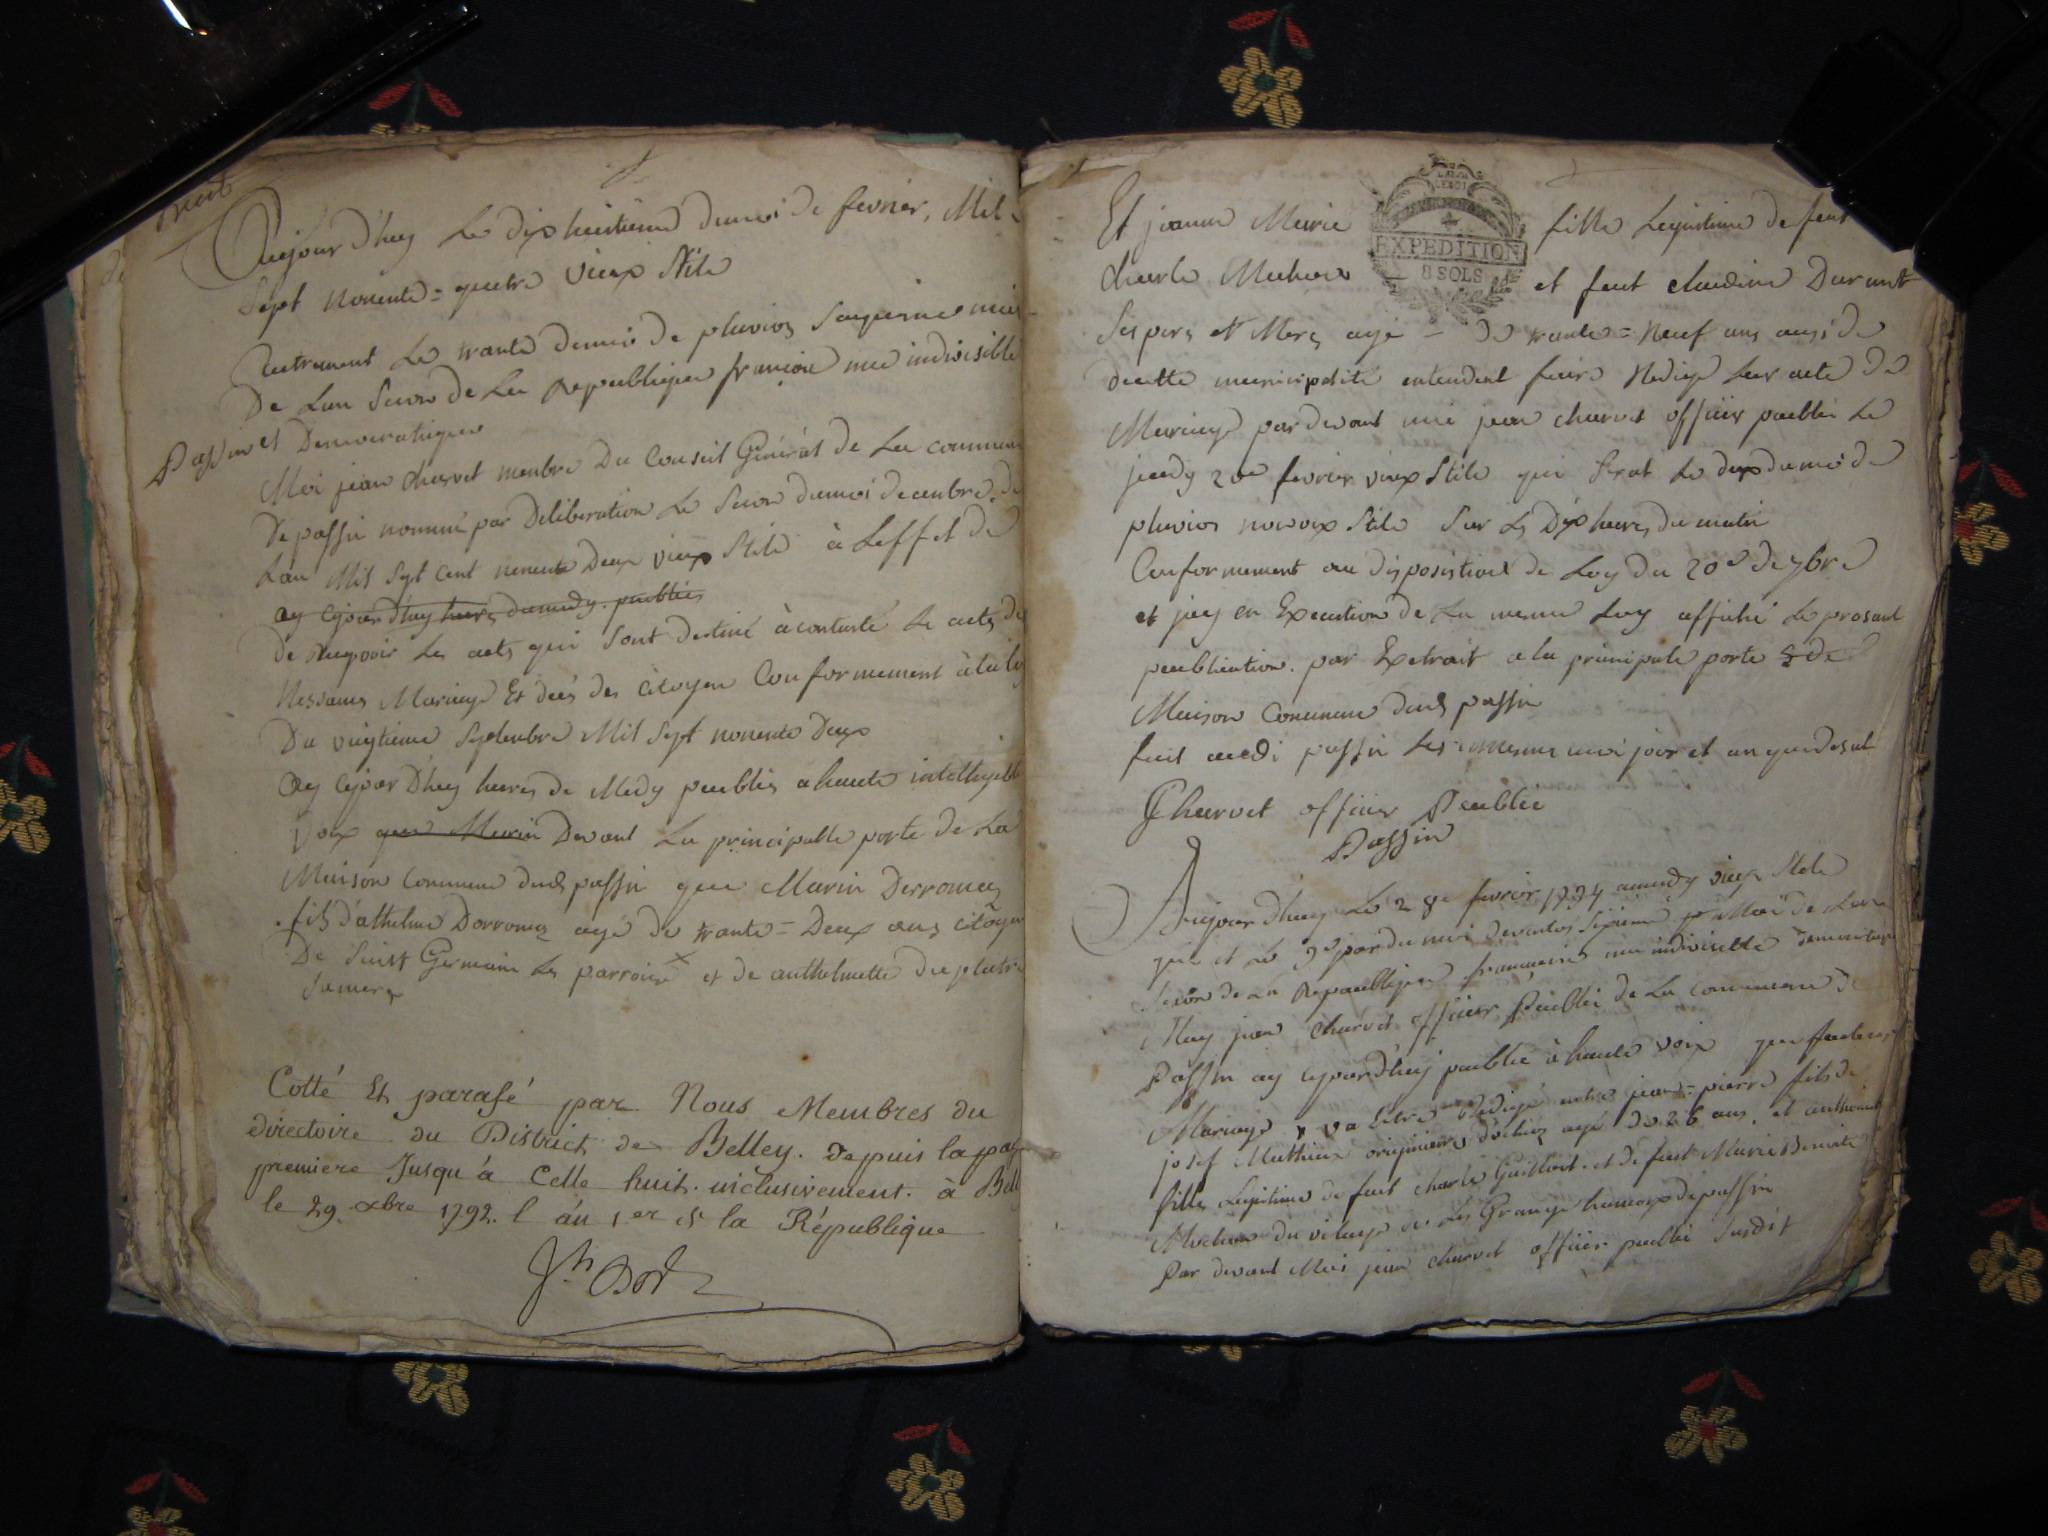 huit
Aujourd'huy Le dixhuitieme dumoi de fevrier, Mil
Sept nonente=quatre vieux Stile
autrement Le trante dumoi de pluvios
De Lan Secon de La Republique françoise une indivisible
et Democratique
Passin
Moi jean Charvet menbre Du Conseil Général de La commune
De passin nommé par Deliberation Le Secon dumoi decenbre de
Lan Mil Sept Cent nonente Deux vieux Stile à Leffet de
ay cejourd'huy heures dumidy publiés
de Resevoir Les acts qui Sont destiné à contaté Le acts de
Nessances Mariage Et décés des Citoyen Conformement à la loy
Du vingtieme Septenbre Mil Sept nonente Deux
ay cejour D'huy heures de Midy publiés a haute intellygible
voix que Marin Devant La principalle porte de La
Maison Commune dud passin que Marin Derromes
fils d'athelme Derromes agé de trante=Deux ans citoyen
De Saint Germain Les parroise et de anthelmette du platre
Sa mere
Cotté Et parafé par Nous Membres du
directoire du District de Belley. depuis la page
premiere Jusqu'à Celle huit. inclusivement. à Bell
le 29. xbre 1792. l'an 1er de la République
Et jeanne Marie fille Legitime de feut
EXPEDITION
8 SOLS
Charle Michoux et feut claudine Durant
Ses pere et Mere agé = de trante=Neuf ans ausi de
decette municipalité entendent faire Rediger Leur acte de
Mariage par devant moi jean charvet officier publie Le
jeudy 20e fevrier vieux Stile qui Serat Le dumoi de
pluvios nouvox Stile Sur Les Dix heures du matin
Conformement au disposistions de Loy du 20e de 7bre
et jay en Execution de La meme Loy affiché Le presant
publication par Extrait a la principale porte de
Maison Commune dud passin
fait audi passin Les mesme moi jour et an que desut
JCharvet officier Publie
Passin
Aujourdhuy Le 28e fevrier 1794 amidy vieux Stile
qui et Le 9e jour du moi deventos Sixieme Moi de Lan
Secon de La Republique francaise une indivisible Democratique
Moy jean Charvet officier Publié de La commune de
Passin ay cejourdhuy publié à haute voix que
Mariage va Etre Redigé entre jean=pierre fils de
josef Mathieux originiere dochiaz agé de 26 ans. et anthoinet
fille Legitime de feut Charle Guilloit et de feut Marie Benoite
Michoux du vilage de Les Grange hamaux de passin
Par devant Moi jean charvet officier publié Susdit